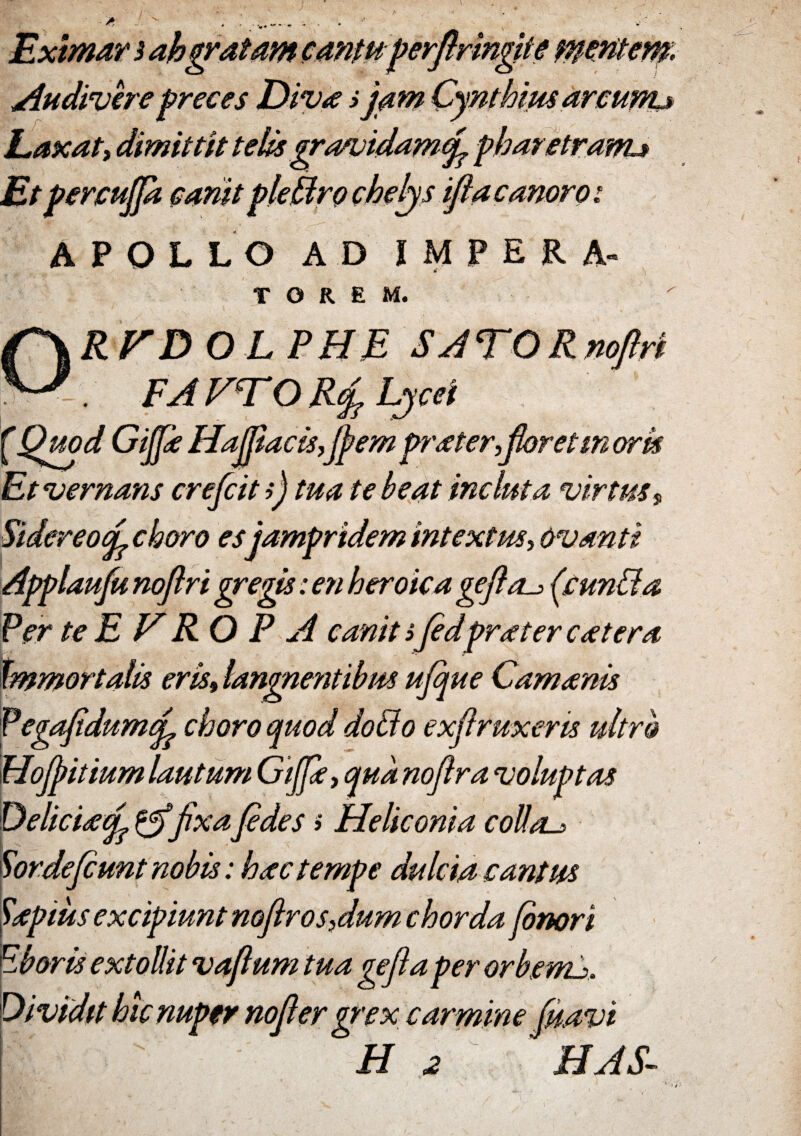 Eximar; ah gratam cantu perſtringite mentem.
Audivère preces Divæ; jam Cynthius arcum
Laxat, dimittit telis gravidamq́; pharetram
Et percuſſa canit plectro chelys iſta canoro:
APOLLO AD IMPERA-
TOREM.
O RVDOLPHE SATOR noſtri
FAVTORq́; Lycei
(Quod Giſſæ Haſſiacis, ſpem præter, floret in oris
Et vernans creſcit;) tua te beat incluta virtus,
Sidereoq́; choro es jampridem intextus, ovanti
Applauſu noſtri gregis: en heroica geſta (cuncta
Per te EVROPA canit; ſed præter cætera
Immortalis eris, langnentibus uſque Camænis
Pegaſidumq́; choro quod docto exſtruxeris ultrò
Hoſpitium lautum Giſſæ, quà noſtra voluptas
Deliciæq́; & fixa ſedes; Heliconia colla
Sordeſcunt nobis: hæc tempe dulcia cantus
Sæpiùs excipiunt noſtros, dum chorda ſonori
Eboris extollit vaſtum tua geſta per orbem.
Dividit hîc nuper noſter grex carmine ſuavi
H 2 HAS-